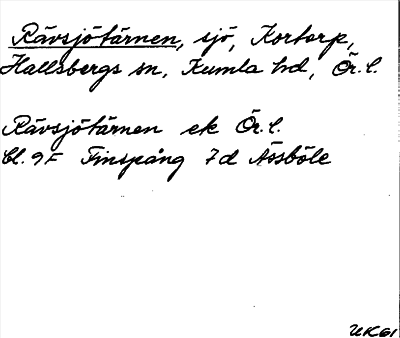 Rävsjötärnen, sjö, Kortorp,
Hallsbergs sn, Kumla hd, Ör. l.
Rävsjötärnen ek Ör. l.
bl. 9F Finspång 7d Åsböle
UK61